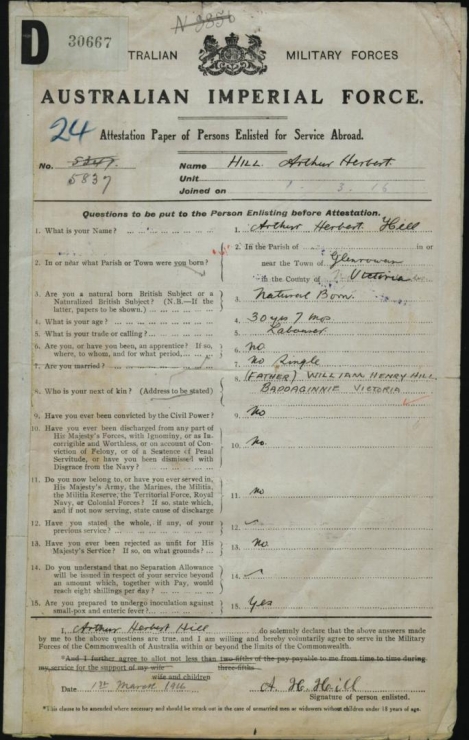 N 9856
D 30667
TRALIAN MILITARY FORCES
AUSTRALIAN IMPERIAL FORCE.
24 Attestation Paper of Persons Enlisted for Service Abroad.
No. 5347. Name HILL Arthur Herbert
5837 Unit
Joined on 1. 3. 16
Questions to be put to the Person Enlisting before Attestation.
1. What is your Name? 1. Arthur Herbert Hill
2. In the Parish of in or
2. In or near what Parish or Town were you born? near the Town of Glenrowan
in the County of Victoria
3. Are you a natural born British Subject or a
Naturalized British Subject? (N.B.—If the 3. Natural Born
latter, papers to be shown.)
4. What is your age? 4. 30 yrs 7 mos
5. What is your trade or calling? 5. Labourer
6. Are you, or have you been, an apprentice? If so,
where, to whom, and for what period 6. no
7. Are you married? 7. no Single
8. Who is your next of kin? (Address to be stated) 8. (FATHER) WILLIAM HENRY HILL
BADDAGINNIE VICTORIA
9. Have you ever been convicted by the Civil Power? 9. No
10. Have you ever been discharged from any part of
His Majesty's Forces, with Ignominy, or as In-
corrigible and Worthless, or on account of Con-
viction of Felony, or of a Sentence of Penal 10. no.
Servitude, or have you been Dismissed with
Disgrace from the Navy?
11. Do you now belong to, or have you ever served in,
His Majesty's Army, the Marines, the Militia,
the Militia Reserve, the Territorial Force, Royal 11. no
Navy, or Colonial Forces? If so, state which,
and if not now serving, state cause of discharge
12. Have you stated the whole, if any, of your
previous service? 12.
13. Have you ever been rejected as unfit for His
Majesty's Service? If so, on what grounds? 13. No.
14. Do you understand that no Separation Allowance
will be issued in respect of your service beyond
an amount which, together with Pay, would 14.
reach eight shillings per day?
15. Are you prepared to undergo inoculation against
small-pox and enteric fever? 15. Yes
I, Arthur Herbert Hill do solemnly declare that the above answers made
by me to the above questions are true, and I am willing and hereby voluntarily agree to serve in the Military
Forces of the Commonwealth of Australia within or beyond the limits of the Commonwealth.
*And I further agree to allot not less than two-fifths of the pay payable to me from time to time during
my service for the support of my wife three-fifths
wife and children
Date 1st March 1916 A. H. Hill
Signature of person enlisted.
*This clause to be amended where necessary and should be struck out in the case of unmarried men or widowers without children under 18 years of age.